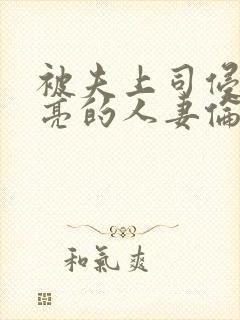 被夫上司侵
亮的人妻倫
和氣爽